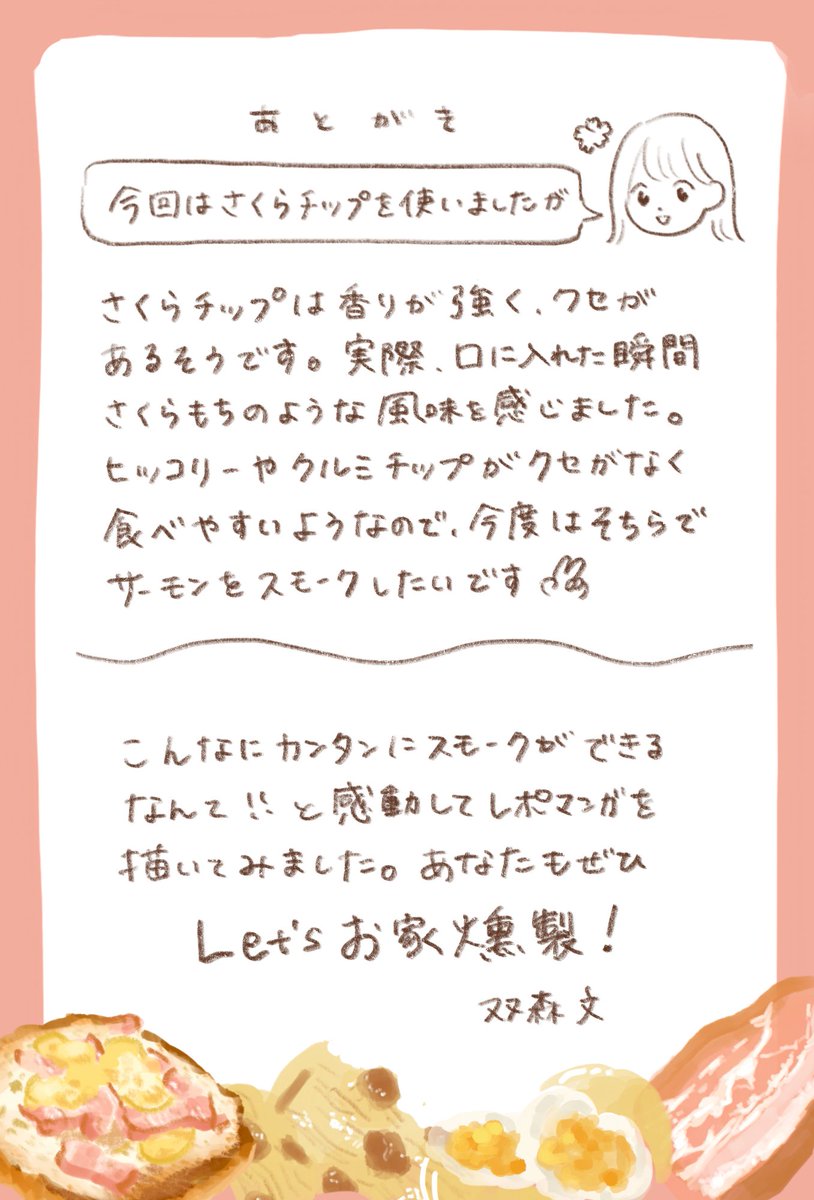 あとがき
今回はさくらチップを使いましたが
さくらチップは香りが強く、クセが
あるそうです。実際、口に入れた瞬間
さくらもちのような風味を感じました。
ヒッコリーやクルミチップがクセがなく
食べやすいようなので、今度はそちらで
サーモンをスモークしたいです
こんなにカンタンにスモークができる
なんて!!と感動してレポマンガを
描いてみました。あなたもぜひ
Let'sお家燻製!
双森文